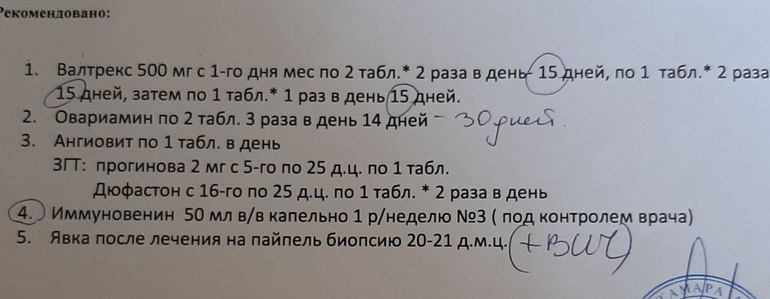 Рекомендовано:
1. Валтрекс 500 мг с 1-го дня мес по 2 табл.* 2 раза в день- 15 дней, по 1 табл.* 2 раза
15 дней, затем по 1 табл.* 1 раз в день 15 дней.
2. Овариамин по 2 табл. 3 раза в день 14 дней - 30 дней.
3. Ангиовит по 1 табл. в день
ЗГТ: прогинова 2 мг с 5-го по 25 д.ц. по 1 табл.
Дюфастон с 16-го по 25 д.ц. по 1 табл. * 2 раза в день
4. Иммуновенин 50 мл в/в капельно 1 р/неделю №3 ( под контролем врача)
5. Явка после лечения на пайпель биопсию 20-21 д.м.ц. (+ ВИЧ)
ТАМАРА